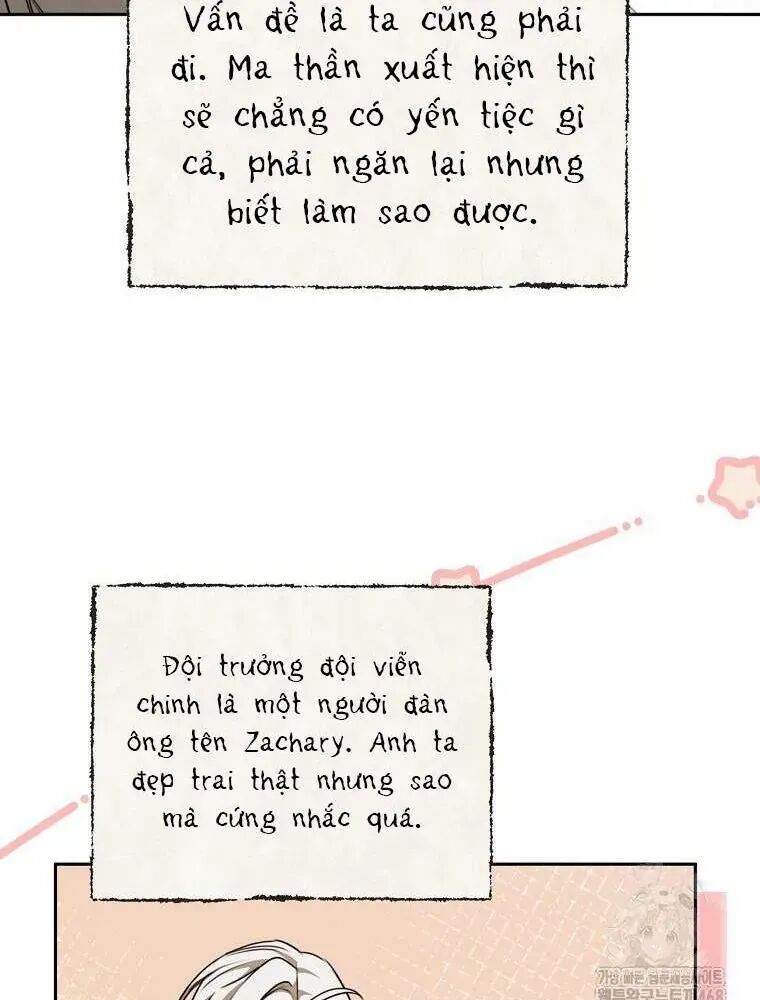 Vấn đề là ta cũng phải
đi. Ma thần xuất hiện thì
sẽ chẳng có yến tiệc gì
cả, phải ngăn lại nhưng
biết làm sao được.
Đội trưởng đội viễn
chinh là một người đàn
ông tên Zachary. Anh ta
đẹp trai thật nhưng sao
mà cứng nhắc quá.
가장 빠른 웹툰제공 사이트